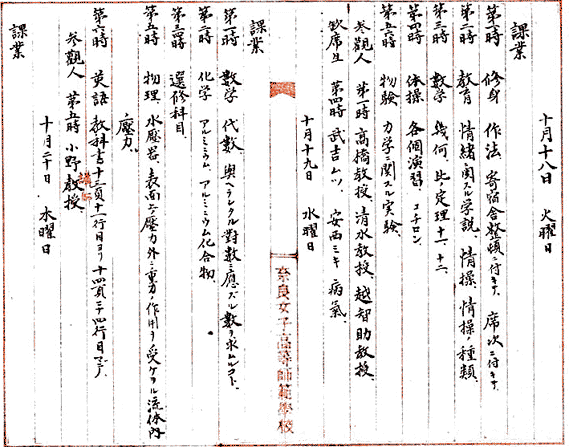 十月十八日 火曜日
課業
第一時 修身 作法 寄宿舎整頓ニ付キテ、席次ニ付キテ
第二時 教育 情緒ニ関スル学説、情操、情操ノ種類
第三時 数学 幾何、比ノ定理十一、十二、
第四時 体操 各個演習、コチロン、
第五六時 物験 力学ニ関スル実験、
参觀人 第一時 高橋教授、清水教授、越智助教授、
欠席生 第四時 武吉ムツ、安西ミキ 病氣
十月十九日 水曜日
奈良女子高等師範學校
課業
第一時 数学 代数、與ヘラレタル對数ニ應ズル数ヲ求ムルコト、
第二時 化学 アルミニウム、アルミニウム化合物、
第三四時 選修科目、
第五時 物理 水壓器、表面ニ壓力外ニ重力ノ作用ヲ受ケタル流体内
壓力、
第六時 英語 教科書十三頁十一行目ヨリ十四頁二十四行目マデ、
参觀人 第五時 小野教授、
講師
十月二十日 木曜日
課業